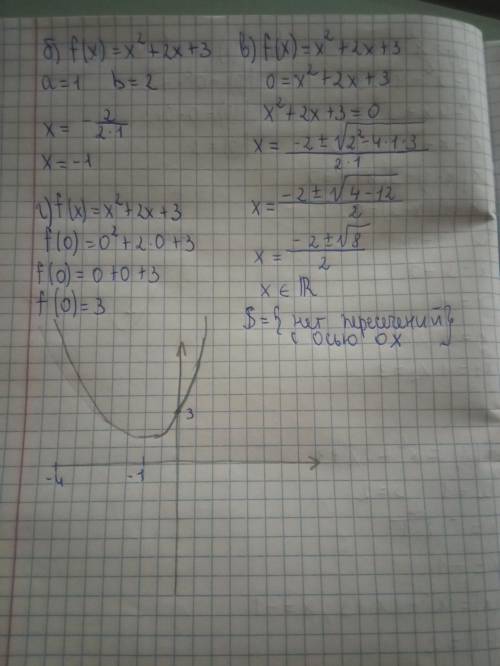 б) f(x)=x²+2x+3
a=1 b=2
x= - 2/2·1
x=-1
г) f(x)=x²+2x+3
f(0)=0²+2·0+3
f(0)=0+0+3
f(0)=3
в) f(x)=x²+2x+3
0=x²+2x+3
x²+2x+3=0
x= -2±√2²-4·1·3/2·1
x= -2±√4-12/2
x= -2±√8/2
x∈ℝ
S={нет пересечений}
с осью ox
3
-4 -1